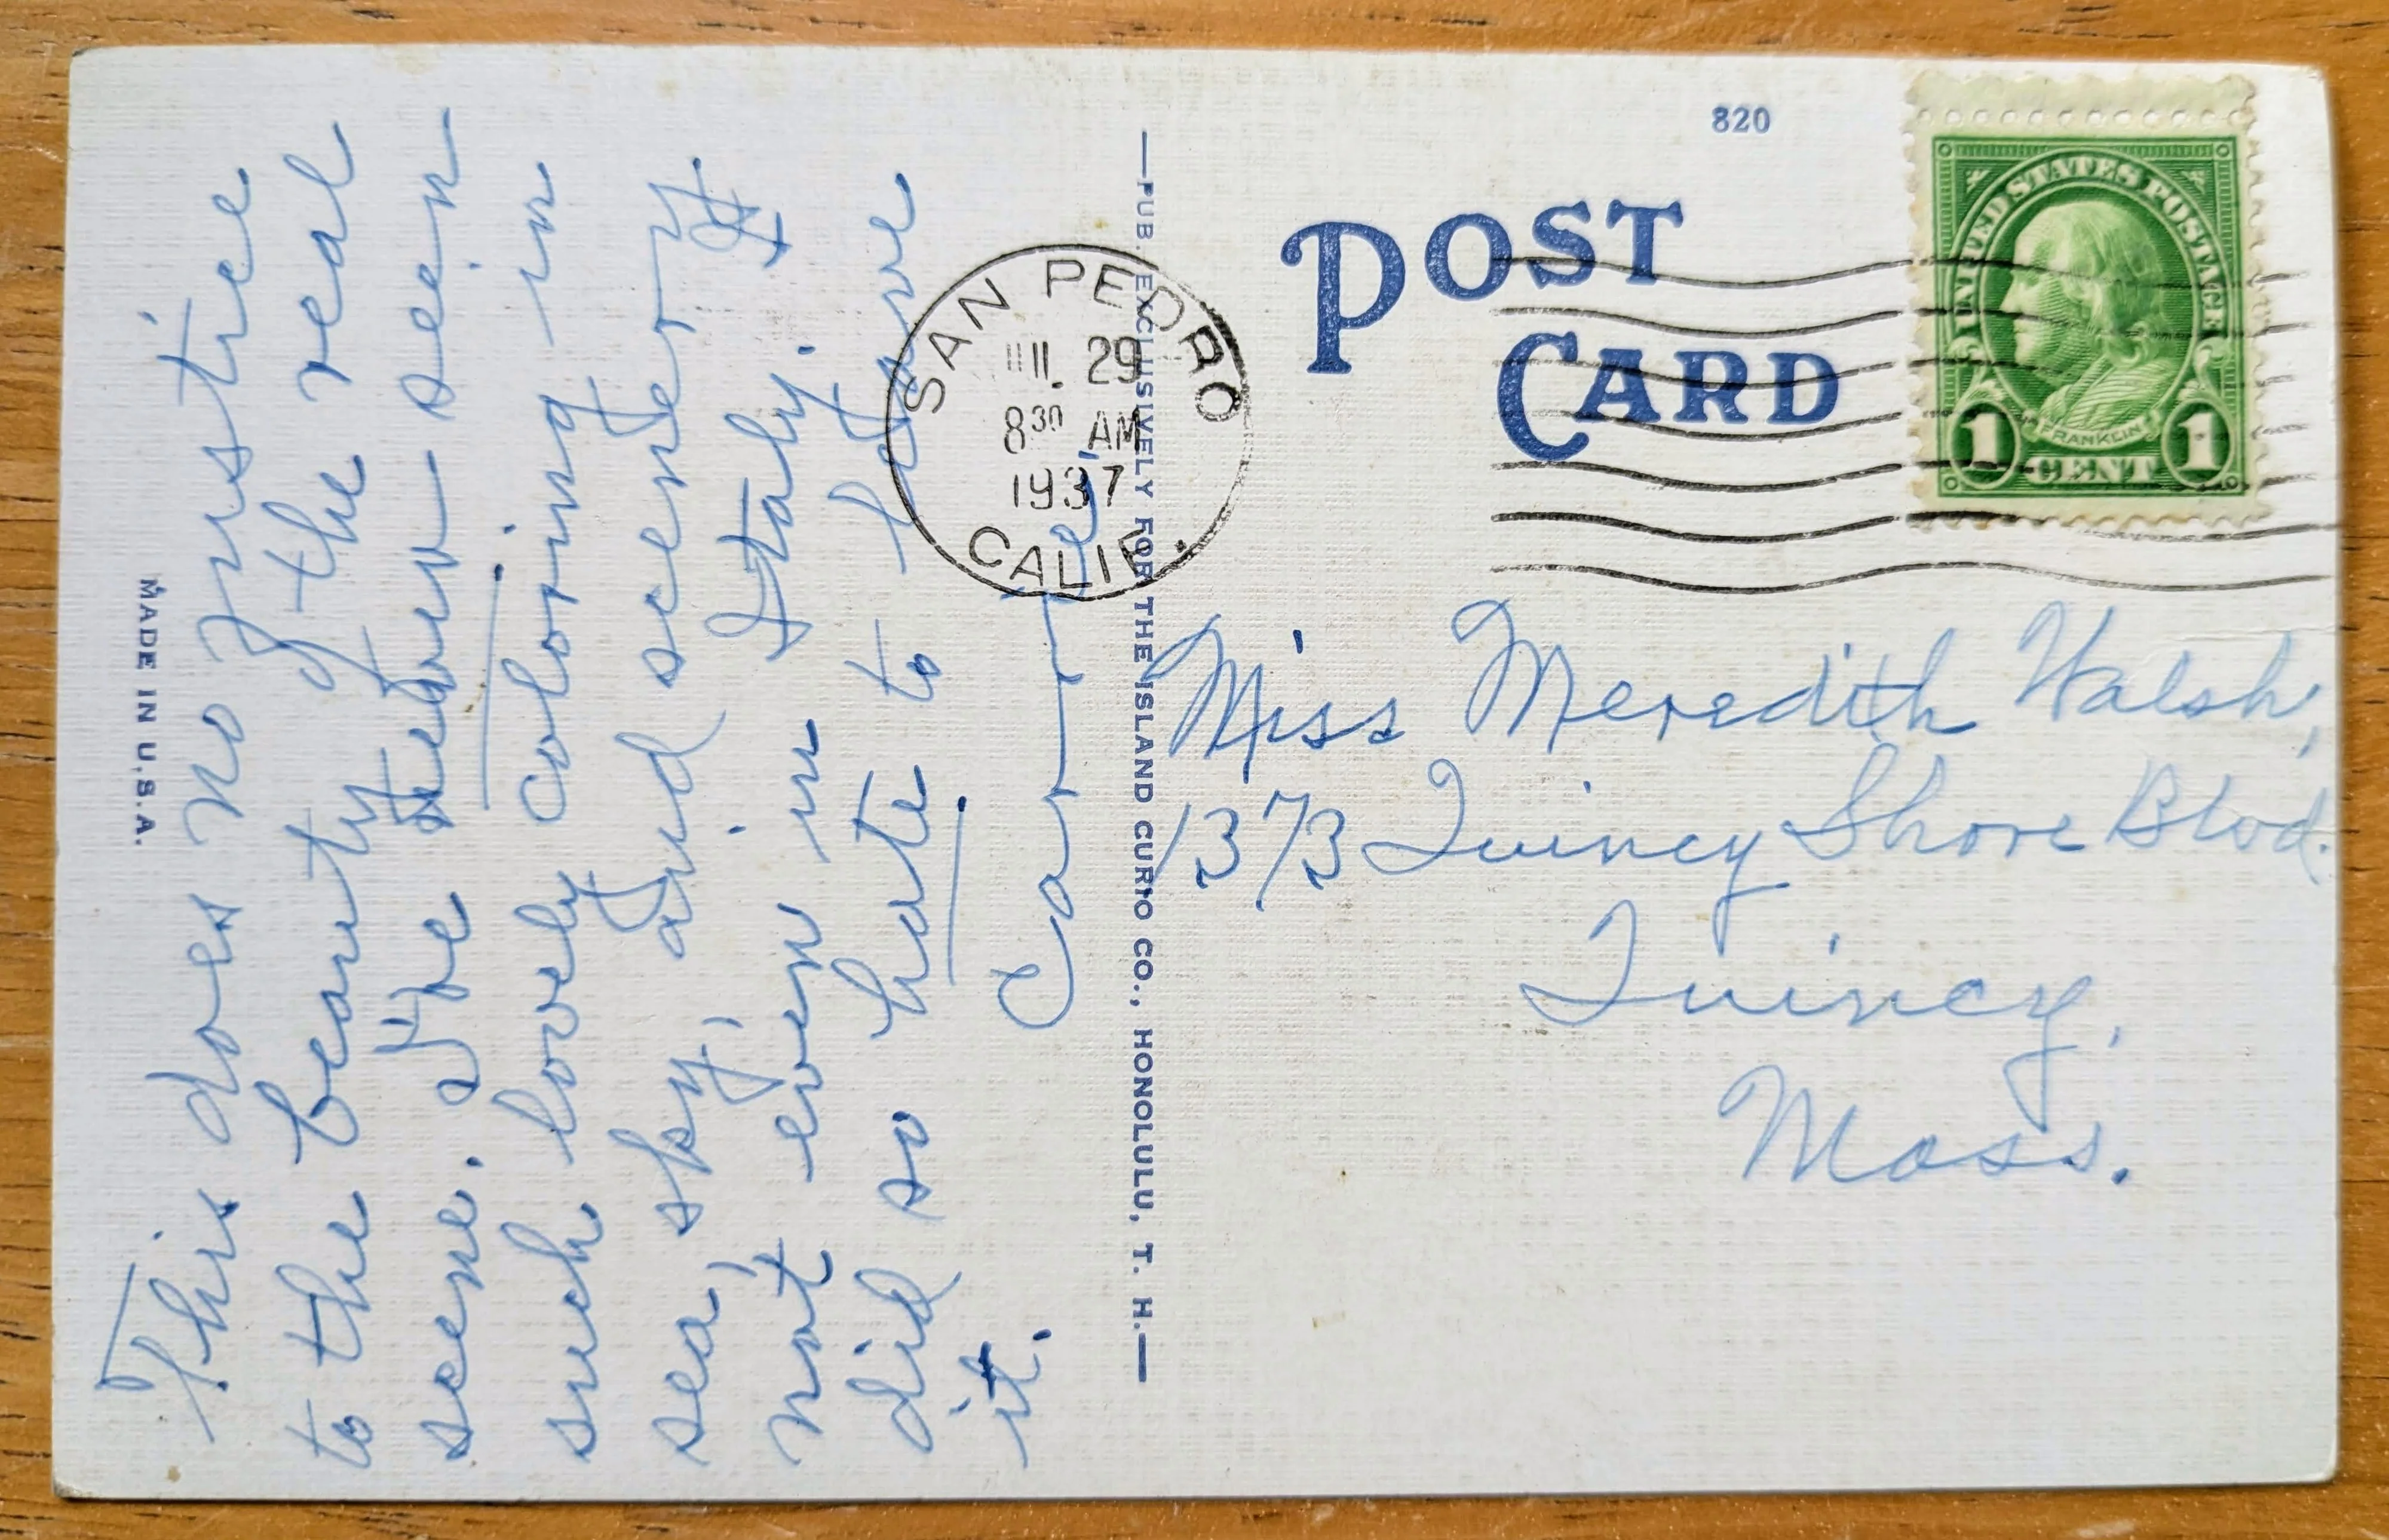 MADE IN U.S.A.
This does no justice
to the beauty of the real
scene. I've never seen
such lovely coloring in
sea, sky, and scenery
not even in Italy. I
did so hate to leave
it.
—PUB. EXCLUSIVELY FOR THE ISLAND CURIO CO., HONOLULU, T. H.—
820
POST
CARD
SAN PEDRO
29
8 30 AM
1937
CALIF.
UNITED STATES POSTAGE
FRANKLIN
1 CENT 1
Miss Meredith Walsh,
1373 Quincy Shore Blvd.
Quincy,
Mass.